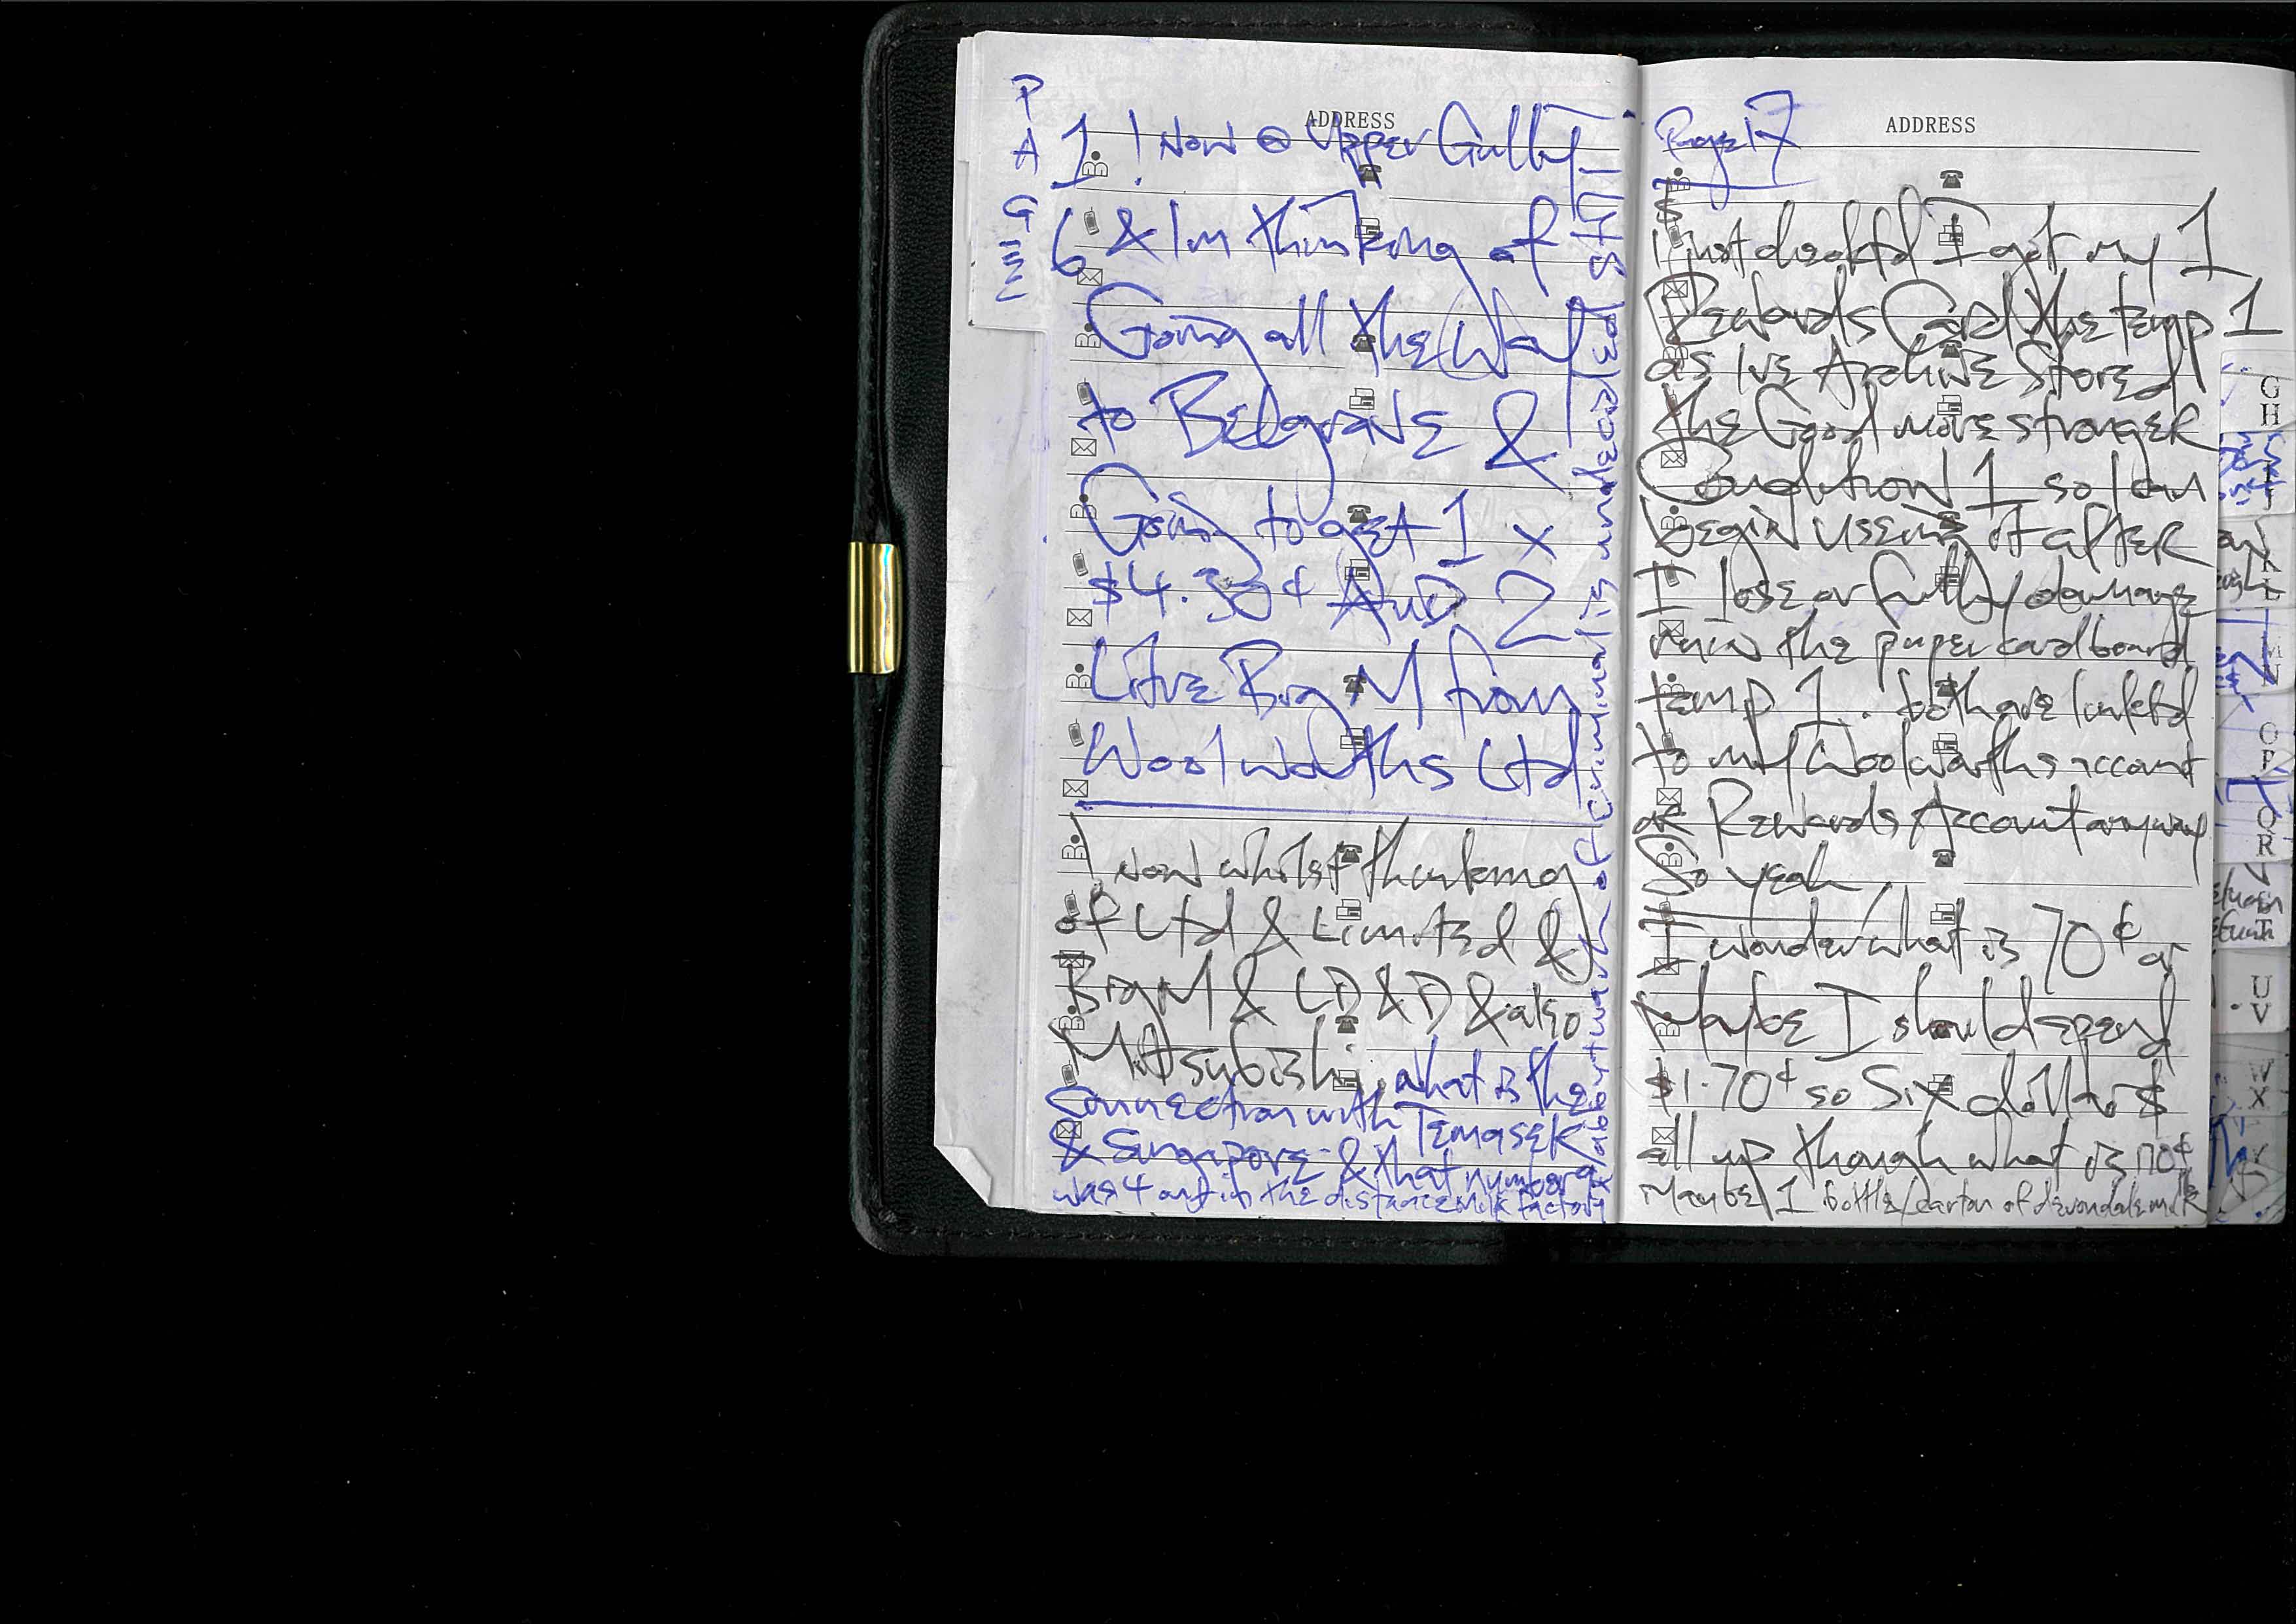 PAGE 16
ADDRESS
! Now @ Upper Gully
& Im thinking of
Going all the Way
to Belgrave &
Going to get 1 x
$4.30¢ AuD 2
Litre Big M from
Woolwoths Ltd
Now whilst thinking
of Ltd & Limited &
Big M & LD & D & also
Mitsubishi, what is the
Connection with Temasek
& Singapore & that number 9
was 4 out in the distance milk factory
about warth of criminal is unleaded still
Page 17
ADDRESS
I just I got my 1
Rewards Card the temp 1
as Ive Archive Stored
the Good more stronger
Condition 1 so I can
begin useing it after
I lose or fully damage
ruin the paper cardboard
temp 1. both are linked
to my Woolwarths account
or Rewards Account anyway
So yeah.
I wonder what is 70¢ or
Maybe I should spend
$1.70¢ so Six dollar$
all up though what is 170¢
Maybe 1 bottle/carton of devondale milk
G
H
I
J
K
L
M
N
O
P
Q
R
S
T
U
V
W
X
Y